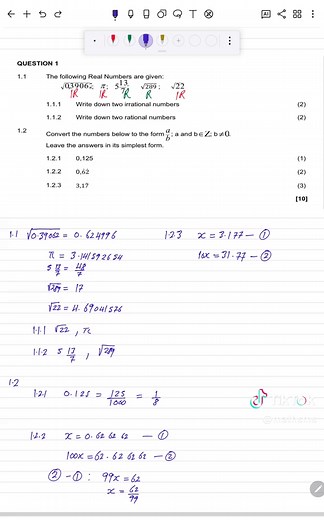 QUESTION 1
1.1 The following Real Numbers are given:
√0,39062; π; 5 13/7; √289; √22
IR IR R R IR
1.1.1 Write down two irrational numbers (2)
1.1.2 Write down two rational numbers (2)
1.2 Convert the numbers below to the form a/b; a and b∈Z; b≠0.
Leave the answers in its simplest form.
1.2.1 0,125 (1)
1.2.2 0,62 (2)
1.2.3 3,17 (3)
[10]
1.1 √0.39062 = 0.624996
π = 3.141592654
5 13/7 = 48/7
√289 = 17
√22 = 4.69041576
1.1.1 √22, π
1.1.2 5 13/7, √289
1.2
1.2.1 0.125 = 125/1000 = 1/8
1.2.2 x = 0.62 62 62 — ①
100x = 62.62 62 62 — ②
② - ①: 99x = 62
x = 62/99
1.2.3 x = 3.177 — ①
10x = 31.77 — ②